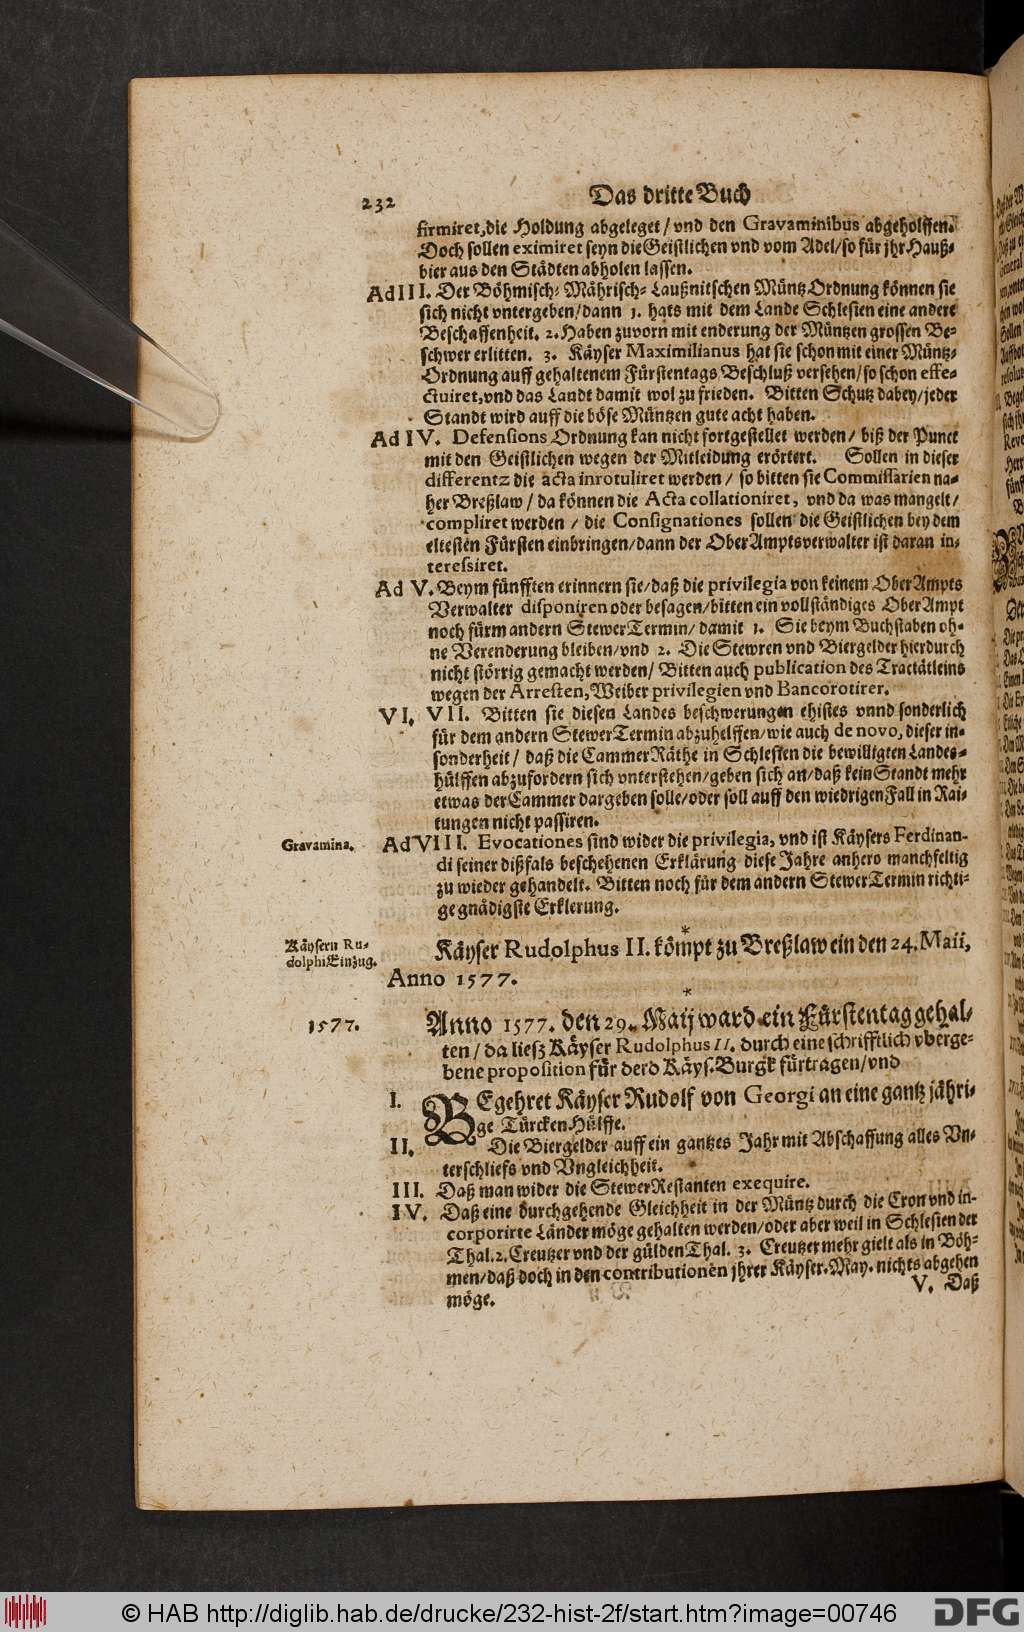 232 Das dritte Buch
firmiret, die Holdung abgeleget / vnd den Gravaminibus abgeholffen.
Doch sollen eximiret seyn die Geistlichen vnd vom Adel / so für jhr Hauß-
bier aus den Städten abholen lassen.
Ad III. Der Böhmisch- Mährisch- Laußnitschen Müntz Ordnung können sie
sich nicht vntergeben / dann 1. hats mit dem Lande Schlesien eine andere
Beschaffenheit. 2. Haben zuvorn mit enderung der Müntzen grossen Be-
schwer erlitten. 3. Käyser Maximilianus hat sie schon mit einer Müntz-
Ordnung auff gehaltenem Fürstentags Beschluß versehen / so schon effe-
ctuiret, vnd das Landt damit wol zu frieden. Bitten Schutz dabey / jeder
Standt wird auff die böse Müntzen gute acht haben.
Ad IV. Defensions Ordnung kan nicht fortgestellet werden / biß der Punct
mit den Geistlichen wegen der Mitleidung erörtert. Sollen in dieser
differentz die acta inrotuliret werden / so bitten sie Commissarien na-
her Breßlaw / da können die Acta collationiret, vnd da was mangelt /
compliret werden / die Consignationes sollen die Geistlichen bey dem
eltesten Fürsten einbringen / dann der Ober Amptsverwalter ist daran in-
teressiret.
Ad V. Beym fünfften erinnern sie / daß die privilegia von keinem Ober Ampts
Verwalter disponiren oder besagen / bitten ein vollständiges Ober Ampt
noch fürm andern Stewer Termin / damit 1. Sie beym Buchstaben oh-
ne Verenderung bleiben / vnd 2. Die Stewren vnd Biergelder hierdurch
nicht störrig gemacht werden / Bitten auch publication des Tractätleins
wegen der Arresten, Weiber privilegien vnd Bancorotirer.
VI. VII. Bitten sie diesen Landes beschwerungen ehistes vnnd sonderlich
für dem andern Stewer Termin abzuhelffen / wie auch de novo, dieser in-
sonderheit / daß die Cammer Räthe in Schlesien die bewilligten Landes-
hülffen abzufordern sich vnterstehen / geben sich an / daß kein Standt mehr
etwas der Cammer dargeben solle / oder soll auff den wiedrigen Fall in Rai-
tungen nicht passiren.
Gravamina. Ad VIII. Evocationes sind wider die privilegia, vnd ist Käysers Ferdinan-
di seiner dißfals beschehenen Erklärung diese Jahre anhero manchfeltig
zu wieder gehandelt. Bitten noch für dem andern Stewer Termin richti-
ge gnädigste Erklerung.
*
Käysern Ru-
dolphi Einzug.
Käyser Rudolphus II. kömpt zu Breßlaw ein den 24. Maii,
Anno 1577.
*
1577. Anno 1577. den 29. Maij ward ein Fürstentag gehal-
ten / da ließ Käyser Rudolphus II. durch eine schrifftlich vberge-
bene proposition für dero Käys. Burgk fürtragen / vnd
I. BEgehret Käyser Rudolf von Georgi an eine gantz jähri-
ge Türcken Hülffe.
II. Die Biergelder auff ein gantzes Jahr mit Abschaffung alles Vn-
terschliefs vnd Vngleichheit.
III. Daß man wider die Stewer Restanten exequire.
IV. Daß eine durchgehende Gleichheit in der Müntz durch die Cron vnd in-
corporirte Länder möge gehalten werden / oder aber weil in Schlesien der
Thal. 2. Creutzer vnd der gülden Thal. 3. Creutzer mehr gielt als in Böh-
men / daß doch in den contributionen jhrer Käyser. May. nichts abgehen
möge. V. Daß
© HAB http://diglib.hab.de/drucke/232-hist-2f/start.htm?image=00746 DFG